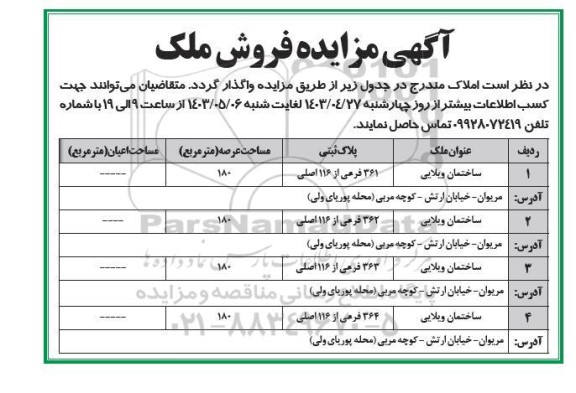 آگهی مزایده فروش ملک
در نظر است املاک مندرج در جدول زیر از طریق مزایده واگذار گردد. متقاضیان می‌توانند جهت
کسب اطلاعات بیشتر از روز چهارشنبه ۱۴۰۳/۰۴/۲۷ لغایت شنبه ۱۴۰۳/۰۵/۰۶ از ساعت ۹ الی ۱۹ با شماره
تلفن ۰۹۹۲۸۰۷۲۴۱۹ تماس حاصل نمایند.
ردیف عنوان ملک پلاک ثبتی مساحت عرصه (متر مربع) مساحت اعیان (متر مربع)
۱ ساختمان ویلایی ۳۶۱ فرعی از ۱۱۶ اصلی ۱۸۰ -----
آدرس: مریوان - خیابان ارتش - کوچه مربی (محله پوریای ولی)
۲ ساختمان ویلایی ۳۶۲ فرعی از ۱۱۶ اصلی ۱۸۰ ----
آدرس: مریوان - خیابان ارتش - کوچه مربی (محله پوریای ولی)
۳ ساختمان ویلایی ۳۶۳ فرعی از ۱۱۶ اصلی ۱۸۰ -----
آدرس: مریوان - خیابان ارتش - کوچه مربی (محله پوریای ولی)
۴ ساختمان ویلایی ۳۶۴ فرعی از ۱۱۶ اصلی ۱۸۰ -----
آدرس: مریوان - خیابان ارتش - کوچه مربی (محله پوریای ولی)
ParsNamadData
۰۲۱-۸۸۳۴۹۶۷۰-۵